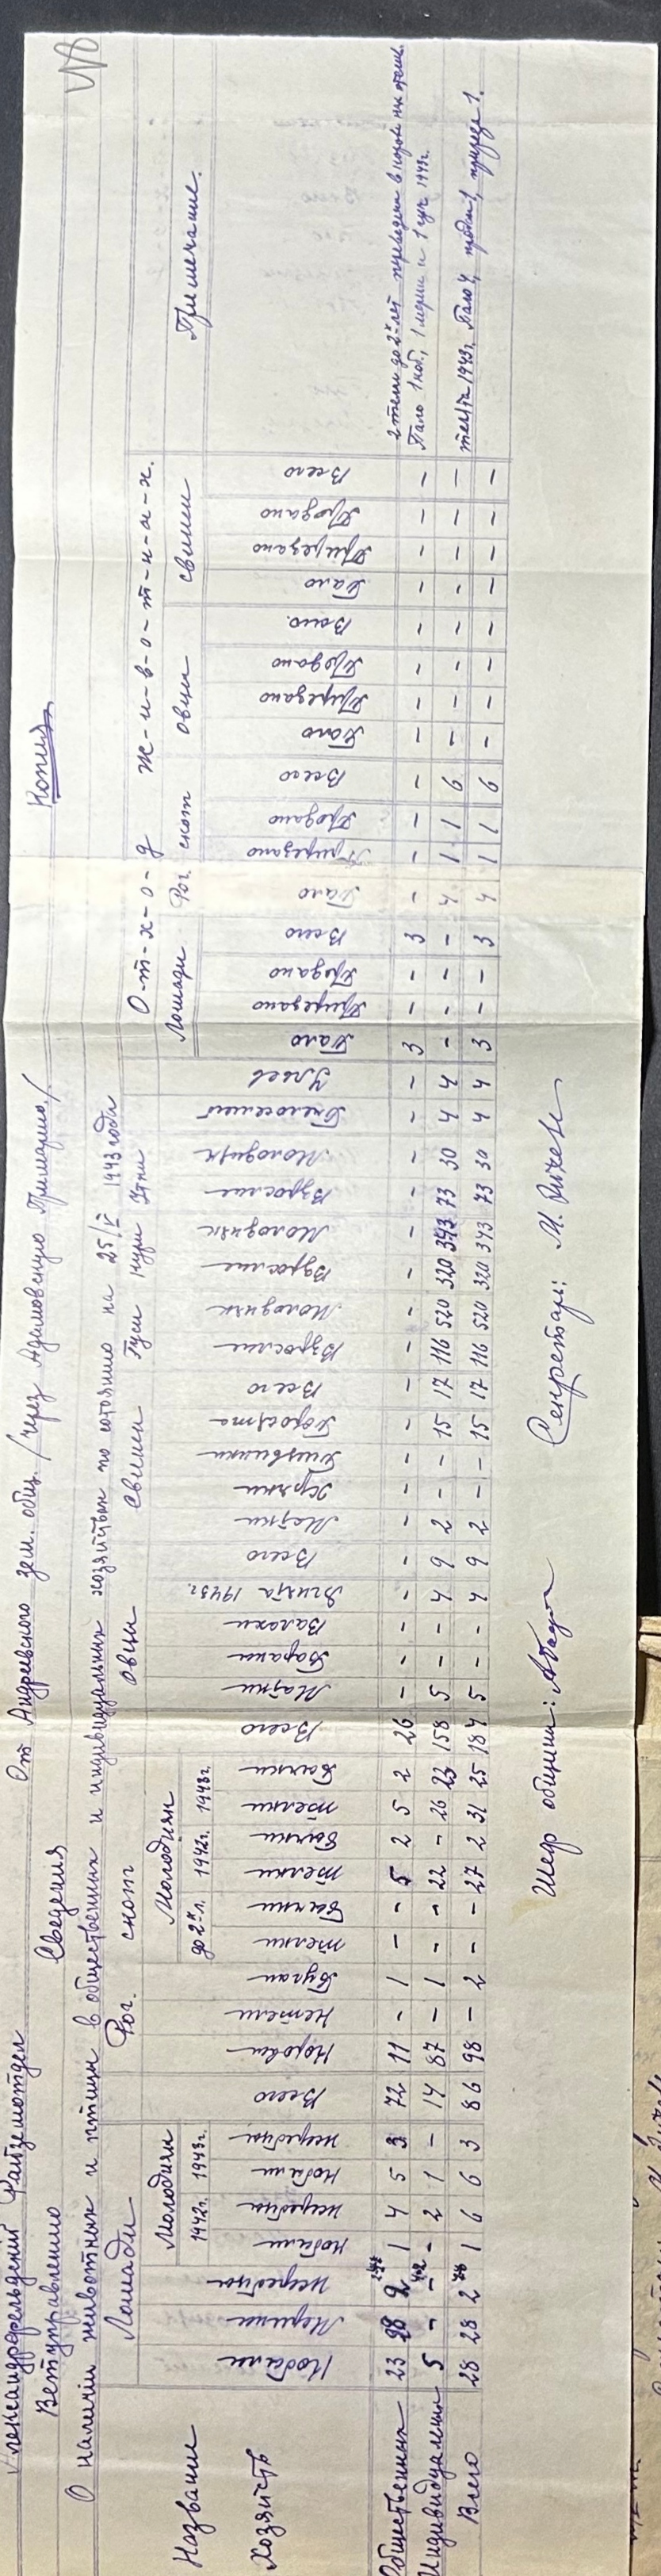 Копия
Александрфельдский Райземотдел
Ветуправлению
От Андреевского зем. общ. /через Адамовскую Примарию/
Сведения
О наличии животных и птицы в общественных и индивидуальных хозяйствах по состоянию на 25/V 1943 года
Название хозяйств
Лошади
Рог. скот
овцы
Свиньи
Гуси
куры
Утки
О-т-х-о-д ж-и-в-о-т-н-ы-х
Молодняк
1942г. 1943г.
Молодняк
до 2х л. 1942г. 1943г.
Лошади
Рог. скот
овцы
свиньи
Примечание.
Кобылы Мерины Жеребцы Кобыли Жеребцы Кобыли Жеребцы Всего
Коровы Нетели Бугаи телки Бычки телки Бычки телки Бычки Всего
Матки Бараны Валахи Ягнята 1943г. Всего
Матки Хряки Поросята Всего
Взрослые Молодняк Взрослые Молодняк Взрослые Молодняк
Ульев
Пало Прирезано Продано Всего
Пало Прирезано Продано Всего
Пало Прирезано Продано Всего
Пало Прирезано Продано Всего
Общественных 23 28 2 1 4 5 3 72 11 - 1 - - 5 2 5 2 26 - - - - - - - - - - - - - - - - - - - 3 - - 3 - - - - - - - - - - - -
Индивидуальных 5 - - - 2 1 - 14 87 - 1 - - 22 - 26 23 158 5 - - 4 9 2 - - 15 17 116 520 320 343 73 30 4 4 - - - - 4 1 1 6 - - - - - - - -
Всего 28 28 2 1 6 6 3 86 98 - 2 - - 27 2 31 25 184 5 - - 4 9 2 - - 15 17 116 520 320 343 73 30 4 4 3 - - 3 4 1 1 6 - - - - - - - -
2 телки до 2х лет переведены в коровы
Пало 1 коб., 1 мерин и 1 1943г.
1943г. Пало 4, продан 1, прирезан 1.
Шеф общины:
Секретарь: М.